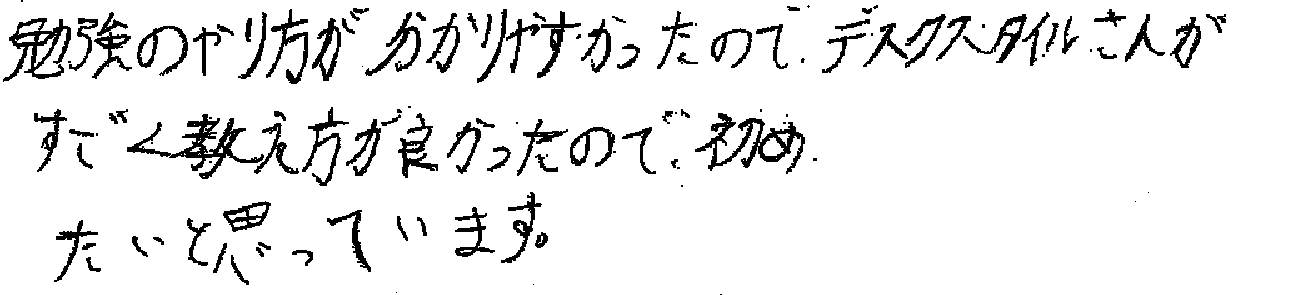 勉強のやり方が分かりやすかったので、デスクスタイルさんが
すごく教え方が良かったので、初め
たいと思っています。